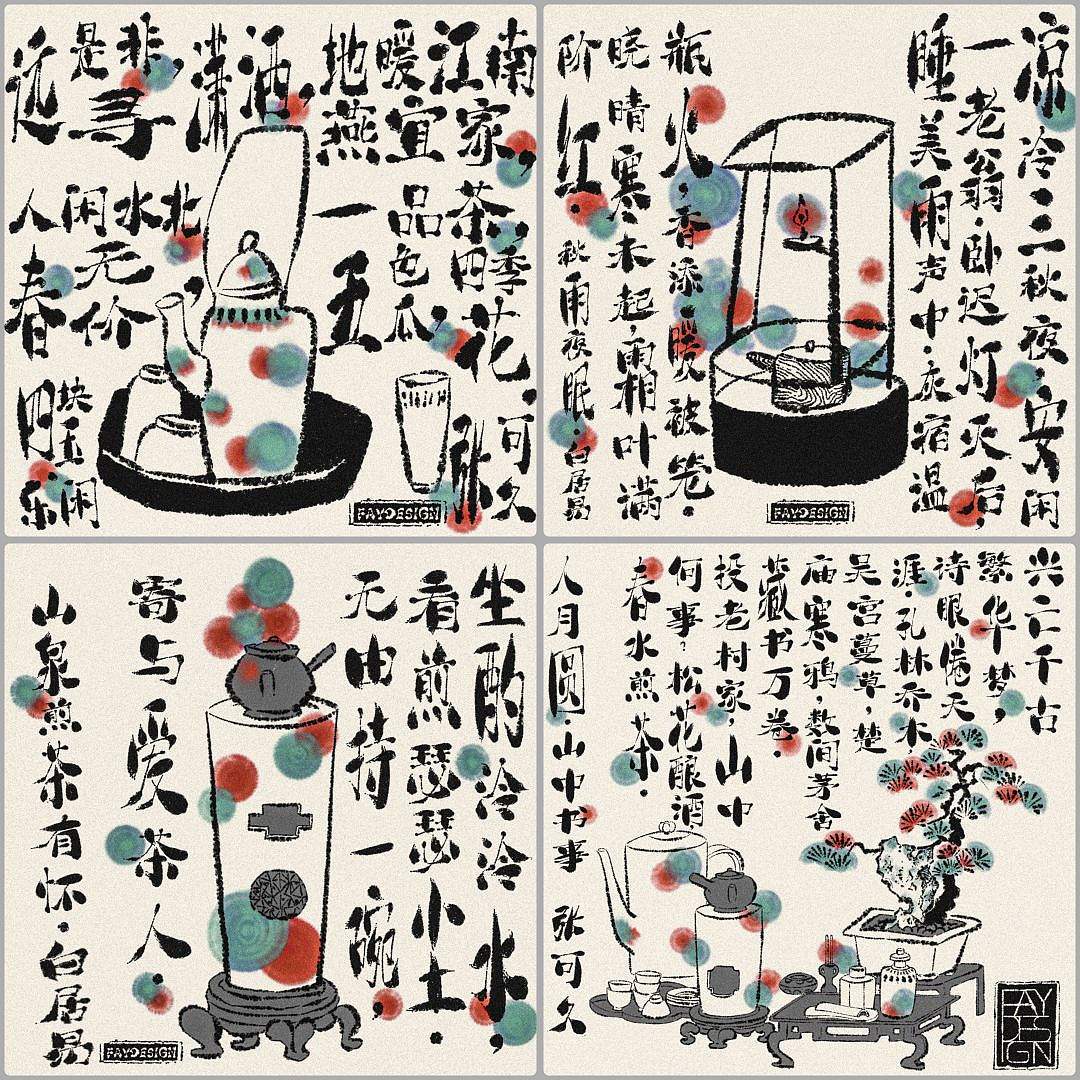 远是非,
寻潇洒,
地暖江南
燕宜家,
人闲水北,
春无价
一品茶
五色瓜,
四季花,
四块玉
乐闲
张可久
FAYDESIGN
凉冷·三秋夜,安闲
一老翁·卧迟灯灭后,
睡美雨声中·灰宿温
瓶火,香添暖被笼.
晓晴寒未起,霜叶满
阶红.
秋雨夜眠·白居易
FAYDESIGN
坐酌泠泠水,
看煎瑟瑟尘.
无由持一碗,
寄与爱茶人.
山泉煎茶有怀·白居易
FAYDESIGN
兴亡千古
繁华梦,
诗眼倦天
涯.孔林乔木
吴宫蔓草,楚
庙寒鸦,数间茅舍
藏书万卷.
投老村家,山中
何事·松花酿酒
春水煎茶.
人月圆.山中书事 张可久
FAY
DES
IGN